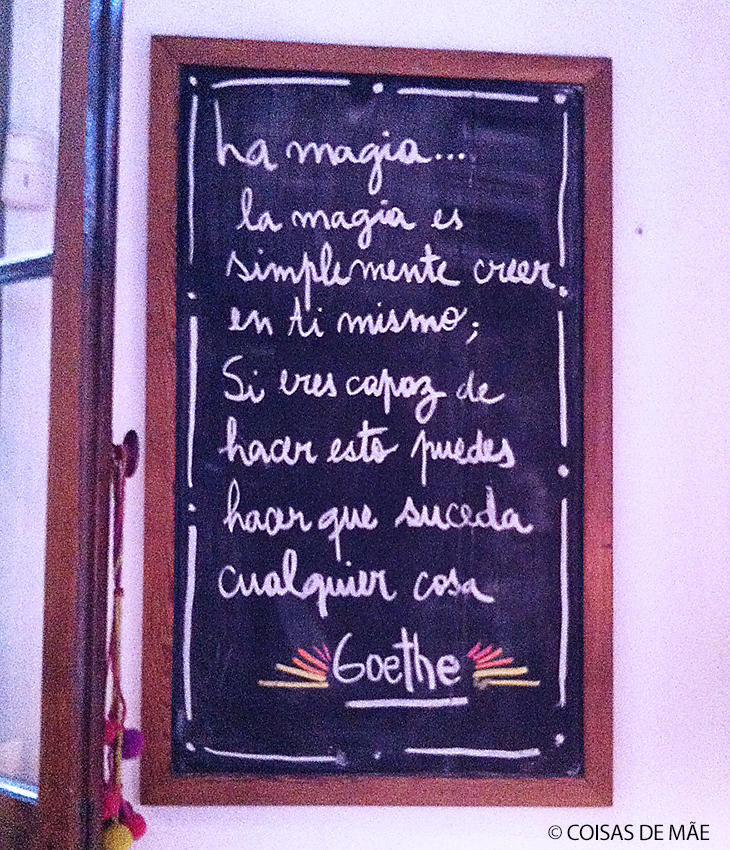 La magia...
la magia es
simplemente creer
en ti mismo;
Si eres capaz de
hacer esto puedes
hacer que suceda
cualquier cosa
Goethe
© COISAS DE MÃE